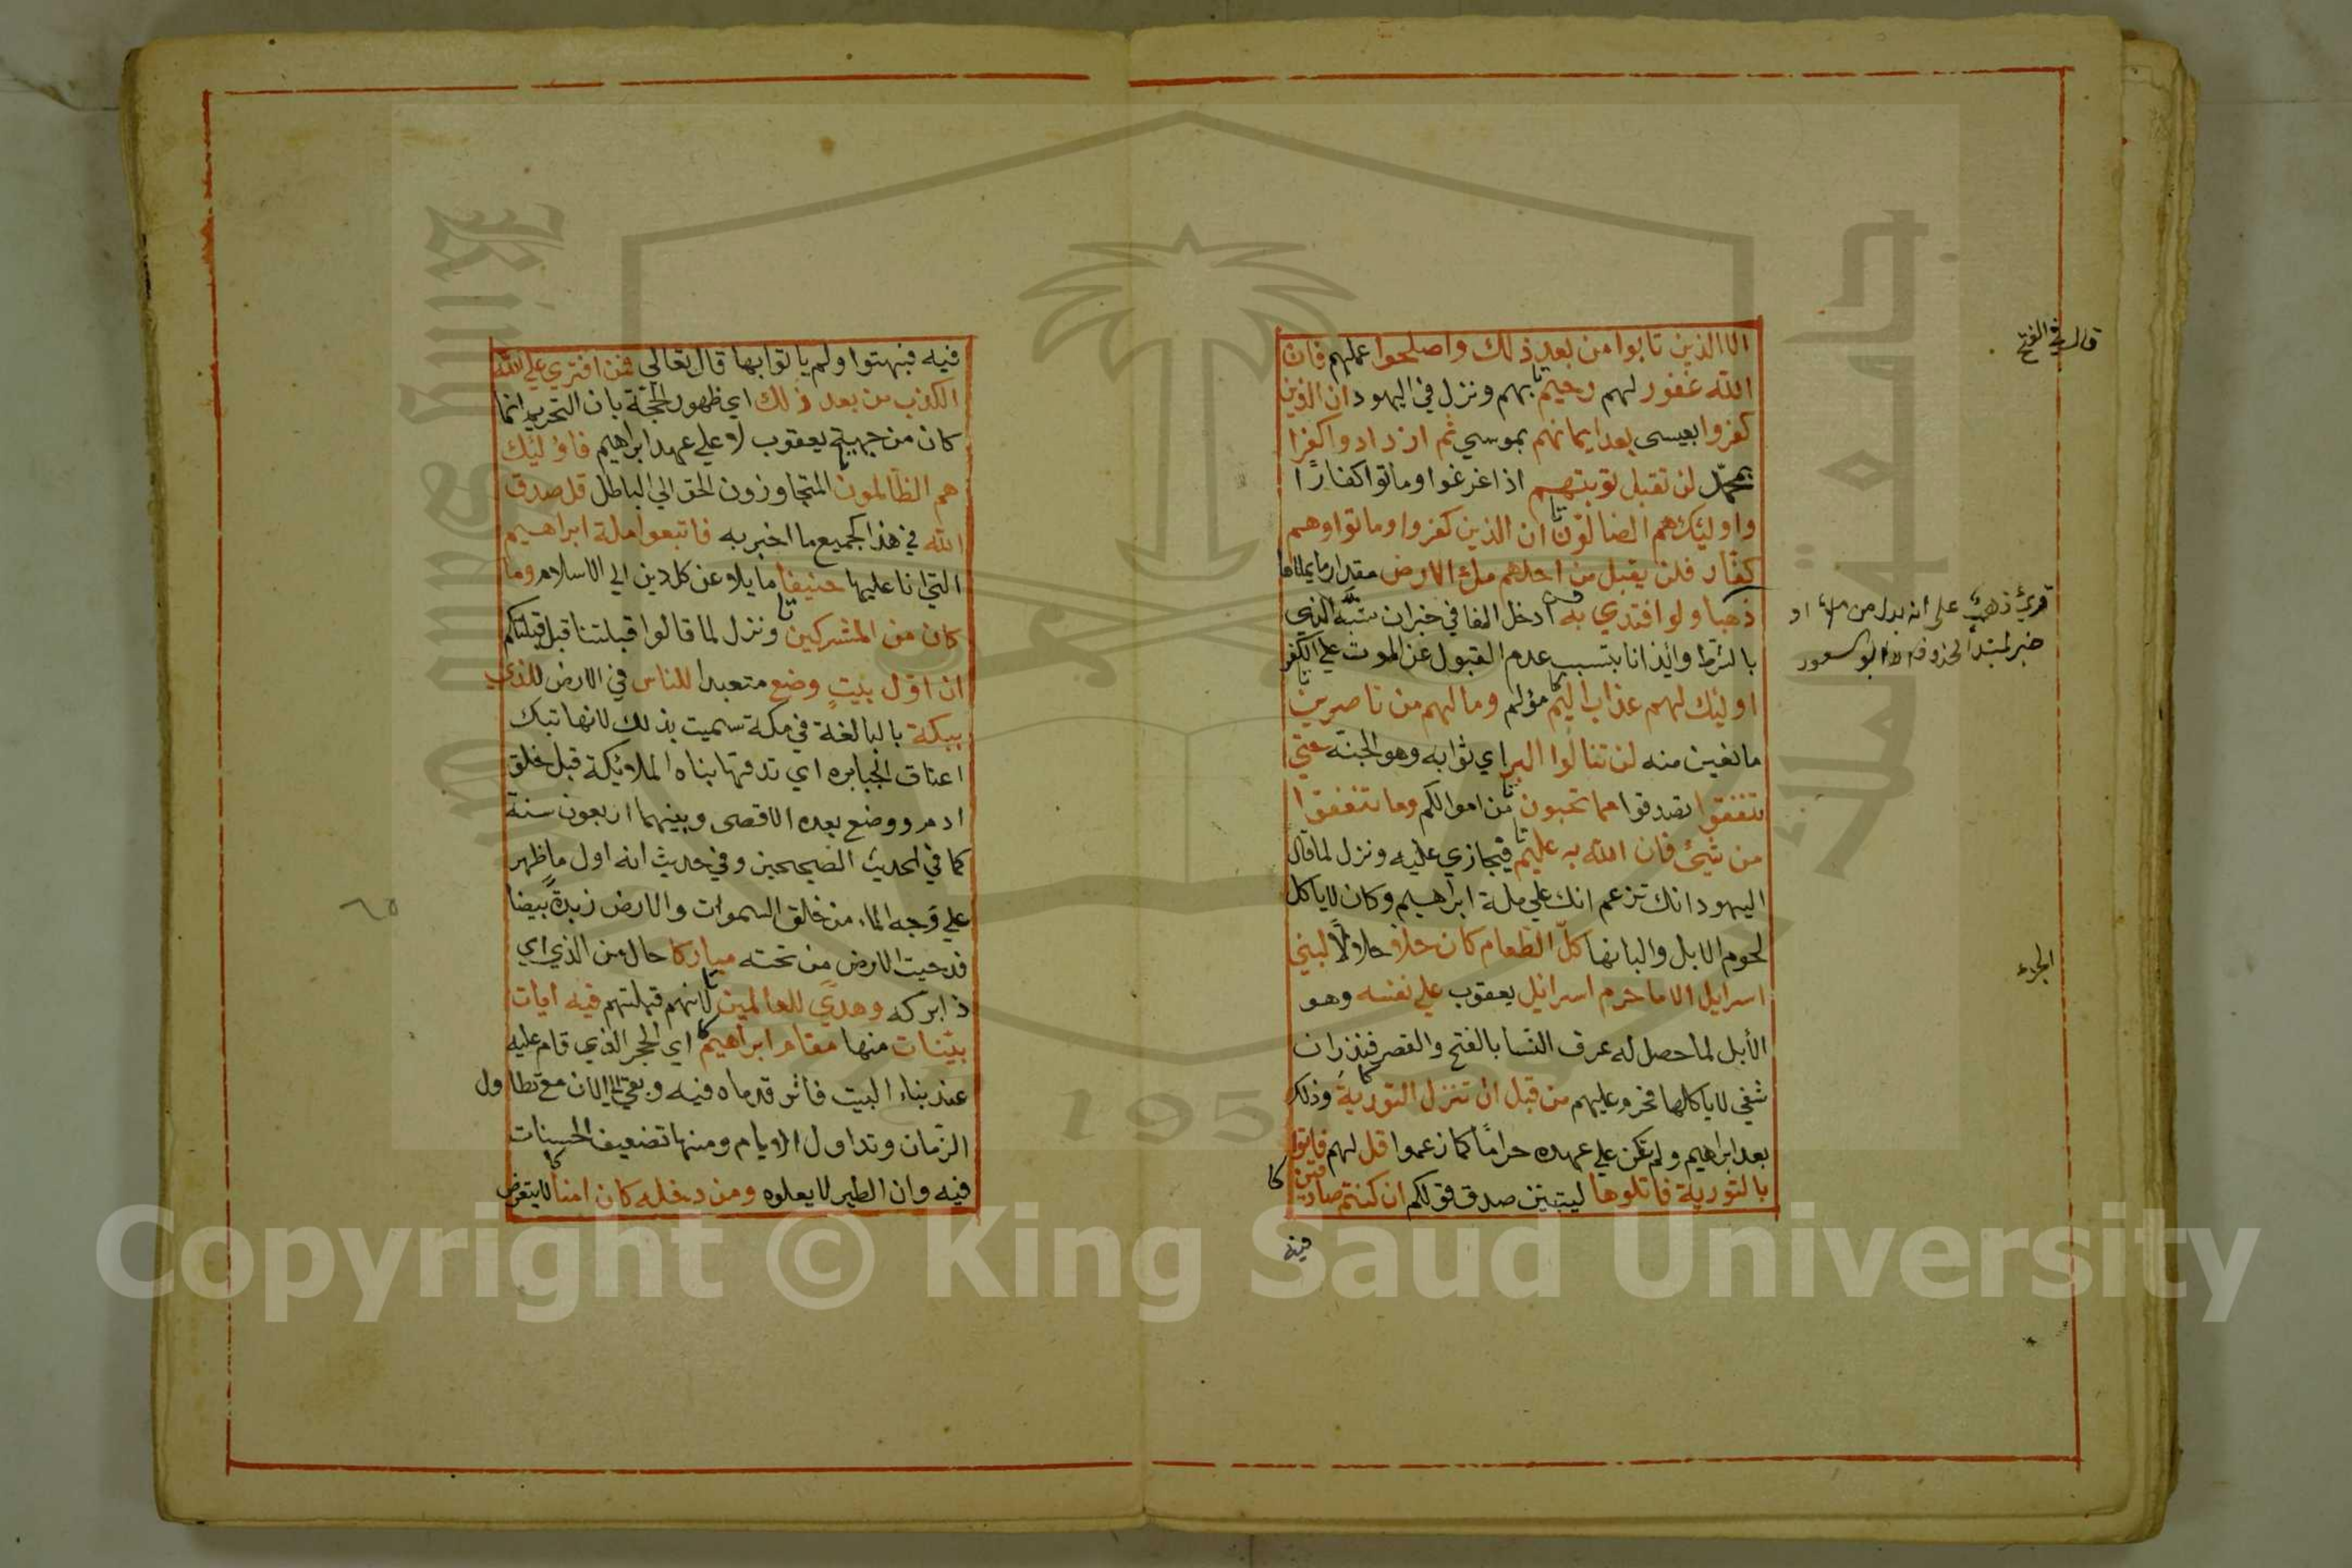 الا الذين تابوا من بعد ذلك واصلحوا عملهم فان
الله غفور لهم رحيم بهم ونزل في اليهود ان الذين
كفروا بعيسى بعد ايمانهم بموسي ثم ازدادوا كفرا
بمحمد لن تقبل توبتهم اذا غرغروا وماتوا كفارًا
واوليك هم الضالون ان الذين كفروا وماتوا وهم
كفار فلن يقبل من احدهم ملء الارض مقدار ما يملاها
ذهبا ولو افتدي به ادخل الفا في خبر ان لشبه الذي
بالشرط وايذانا بتسبب عدم القبول عن الموت علي الكفر
اوليك لهم عذاب اليم مؤلم وما لهم من ناصرين
مانعين منه لن تنالوا البر اي ثوابه وهو الجنة حتي
تنفقوا تصدقوا مما تحبون من اموالكم وما تنفقوا
من شيء فان الله به عليم فيجازي عليه ونزل لما قال
اليهود انك تزعم انك علي ملة ابراهيم وكان لا ياكل
لحوم الابل والبانها كل الطعام كان حلا حلالا لبني
اسرايل الا ما حرم اسرائل يعقوب علي نفسه وهو
الأبل لما حصل له عرق النسا بالفتح والقصر فنذر ان
شفي لا ياكلها فحرم عليهم من قبل ان تنزل التورية وذلك
بعد ابراهيم ولم تكن علي عهده حرامًا كما زعموا قل لهم فاتوا
بالتورية فاتلوها ليتبين صدق قولكم ان كنتم صادقين
فيه
قال في الفتح
قرئ ذهب على انه بدل من ملء او
خبر لمبتدأ محذوف ابو السعود
فيه فبهتوا ولم ياتوا بها قال تعالي فمن افتري علي الله
الكذب من بعد ذلك اي ظهور الحجة بان التحريم انما
كان من جهة يعقوب لا علي عهد ابراهيم فاوليك
هم الظالمون المتجاوزون الحق الي الباطل قل صدق
الله في هذا كجميع ما اخبر به فاتبعوا ملة ابراهيم
التي انا عليها حنيفا مايلا عن كل دين الي الاسلام وما
كان من المشركين ونزل لما قالوا قبلتنا قبل قبلتكم
ان اول بيت وضع متعبدا للناس في الارض للذي
ببكة بالبا لغة في مكة سميت بذلك لانها تبك
اعناق الجبابره اي تدقها بناه الملائكة قبل خلق
ادم ووضع بعده الاقصى وبينهما اربعون سنة
كما في الحديث الصحيحين وفي حديث انه اول ما ظهر
علي وجه الماء من خلق السموات والارض زبدة بيضا
فدحيت الارض من تحته مباركا حال من الذي اي
ذا بركه وهدي للعالمين لانهم قبلتهم فيه ايات
بينات منها مقام ابراهيم اي الحجر الذي قام عليه
عند بناء البيت فاثر قدماه فيه وبقي الي الان مع تطاول
الزمان وتداول الايام ومنها تضعيف الحسنات
فيه وان الطير لا يعلوه ومن دخله كان امنا لا يتعرض
٦٥
1957
Copyright © King Saud University